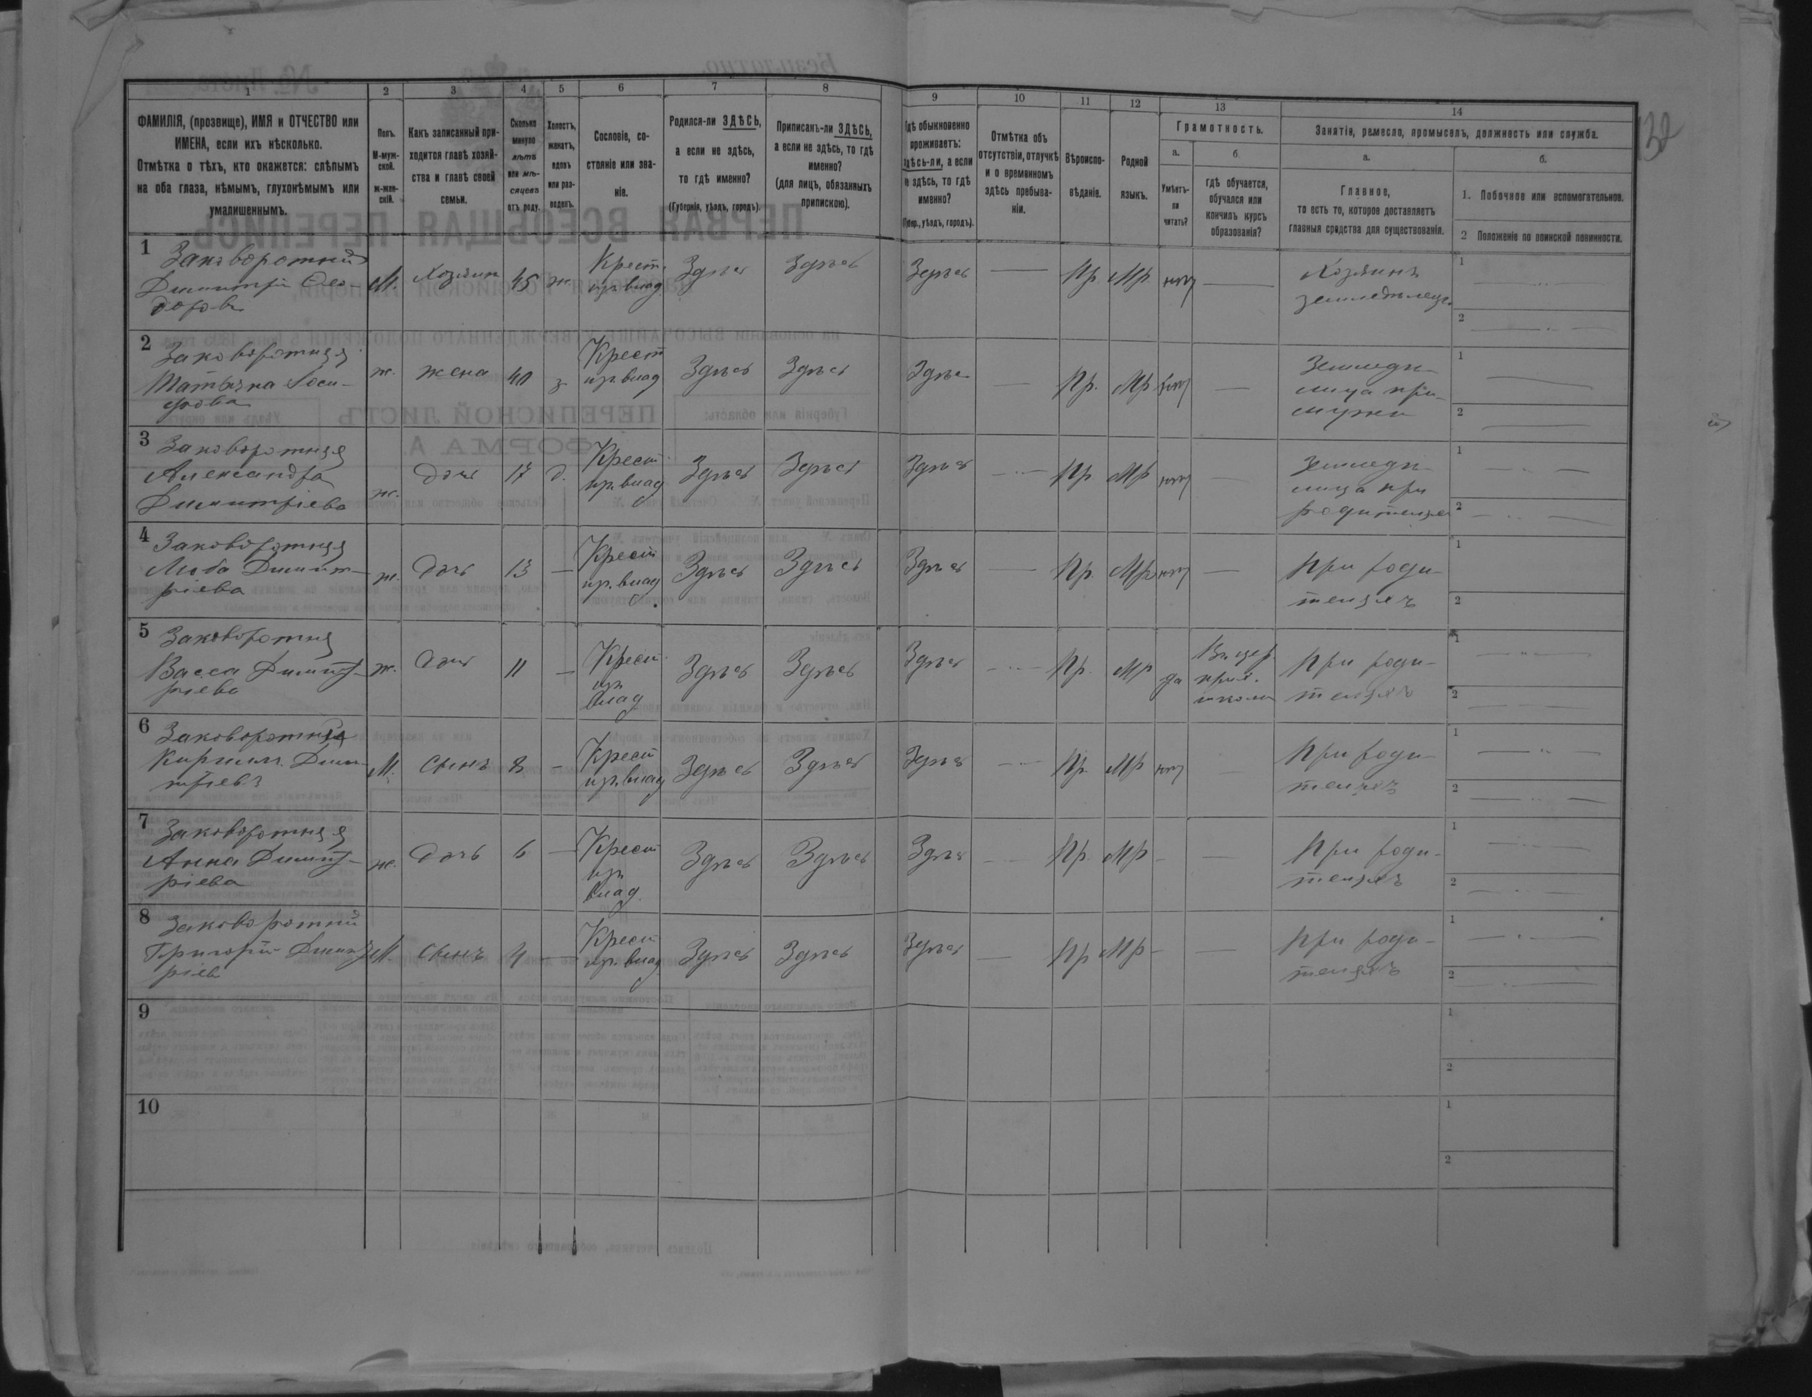 1 2 3 4 5 6 7 8 9 10 11 12 13 14
ФАМИЛІЯ, (прозвище), ИМЯ и ОТЧЕСТВО или
ИМЕНА, если ихъ нѣсколько.
Отмѣтка о тѣхъ, кто окажется: слѣпымъ
на оба глаза, нѣмымъ, глухонѣмымъ или
умалишеннымъ.
Полъ.
М-муж-
ской.
ж-жен-
скій.
Какъ записанный при-
ходится главѣ хозяй-
ства и главѣ своей
семьи.
Сколько
минуло
лѣтъ
или мѣ-
сяцевъ
отъ роду.
Холостъ,
женатъ,
вдовъ
или раз-
веденъ.
Сословіе, со-
стояніе или зва-
ніе.
Родился-ли ЗДѢСЬ,
а если не здѣсь,
то гдѣ именно?
(Губернія, уѣздъ, городъ).
Приписанъ-ли ЗДѢСЬ,
а если не здѣсь, то гдѣ
именно?
(для лицъ, обязанныхъ
припискою).
Гдѣ обыкновенно
проживаетъ:
здѣсь-ли, а если
не здѣсь, то гдѣ
именно?
(Губер., уѣздъ, городъ).
Отмѣтка объ
отсутствіи, отлучкѣ
и о временномъ
здѣсь пребыва-
ніи.
Вѣроиспо-
вѣданіе.
Родной
языкъ.
Грамотность.
а.
Умѣетъ-
ли
читать?
б.
гдѣ обучается,
обучался или
кончилъ курсъ
образованія?
Занятія, ремесло, промыселъ, должность или служба.
а.
Главное,
то есть то, которое доставляетъ
главныя средства для существованія.
б.
1. Побочное или вспомогательное.
2 Положеніе по воинской повинности.
132
1
Заковоротній
Димитрій Ѳео-
доровъ
М. Хозяин 45 ж. Крест. из. влад Здѣсь Здѣсь Здѣсь — Пр. Мр. нѣт —
Хозяинъ
земледѣлец.
1
2
2
Заковоротняя
Татьяна Іоси-
фова
ж. жена 40 з. Крест из. влад Здѣсь Здѣсь Здѣсь — Пр. Мр нѣт —
Земледѣ-
лица при
мужи
1
2
3
Заковоротняя
Александра
Димитріева
ж. дочь 17 д. Крест. из. влад Здѣсь Здѣсь Здѣсь — Пр. Мр нѣт
Земледѣ-
лица при
родителях
1
2
4
Заковоротняя
Люба Димит-
ріева
ж. дочь 13 — Крест из. влад Здѣсь Здѣсь Здѣсь — Пр. Мр. нѣт —
При роди-
теляхъ
1
2
5
Заковоротняя
Васса Димит-
ріева
ж. дочь 11 — Крест. из влад Здѣсь Здѣсь Здѣсь — Пр. Мр да
В. цер
прих.
школѣ
При роди-
теляхъ
1
2
6
Заковоротній
Кирилл Дими-
тріевъ
М. сынъ 8 — Крест из. влад Здѣсь Здѣсь Здѣсь — Пр. Мр нѣт
При роди-
теляхъ
1
2
7
Заковоротняя
Анна Димит-
ріева
ж. дочь 6 — Крест из влад. Здѣсь Здѣсь Здѣсь — Пр. Мр — —
При роди-
теляхъ
1
2
8
Заковоротній
Григорій Димит-
ріев
М. сынъ 4 — Крест из. влад Здѣсь Здѣсь Здѣсь — Пр Мр — —
При роди-
теляхъ
1
2
9
1
2
10
1
2